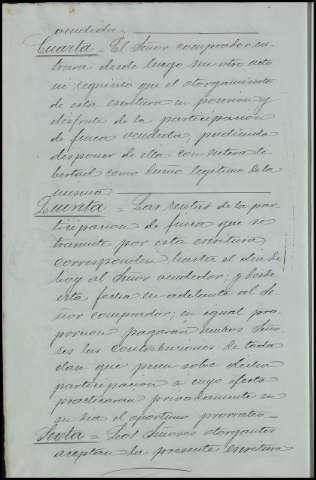 vendida.
Cuarta = El Señor comprador en-
trará desde luego sin otro acto
ni requisito que el otorgamiento
de esta escritura en posesion y
disfrute de la participacion
de finca vendida, pudiendo
disponer de ella con entera li-
bertad como dueño legitimo de la
misma
Quinta = Las rentas de la par-
ticipacion de finca que se
transmite por esta escritura
corresponden hasta el dia de
hoy al Señor vendedor; y desde
esta fecha en adelante al Se-
ñor comprador; en igual pro-
porcion pagarán ambos Seño-
res las contribuciones de toda
clase que pesen sobre dicha
participacion a cuyo efecto
practicarán privadamente en
su dia el oportuno prorrateo =
Sexta = Los Señores otorgantes
aceptan la presente escritura